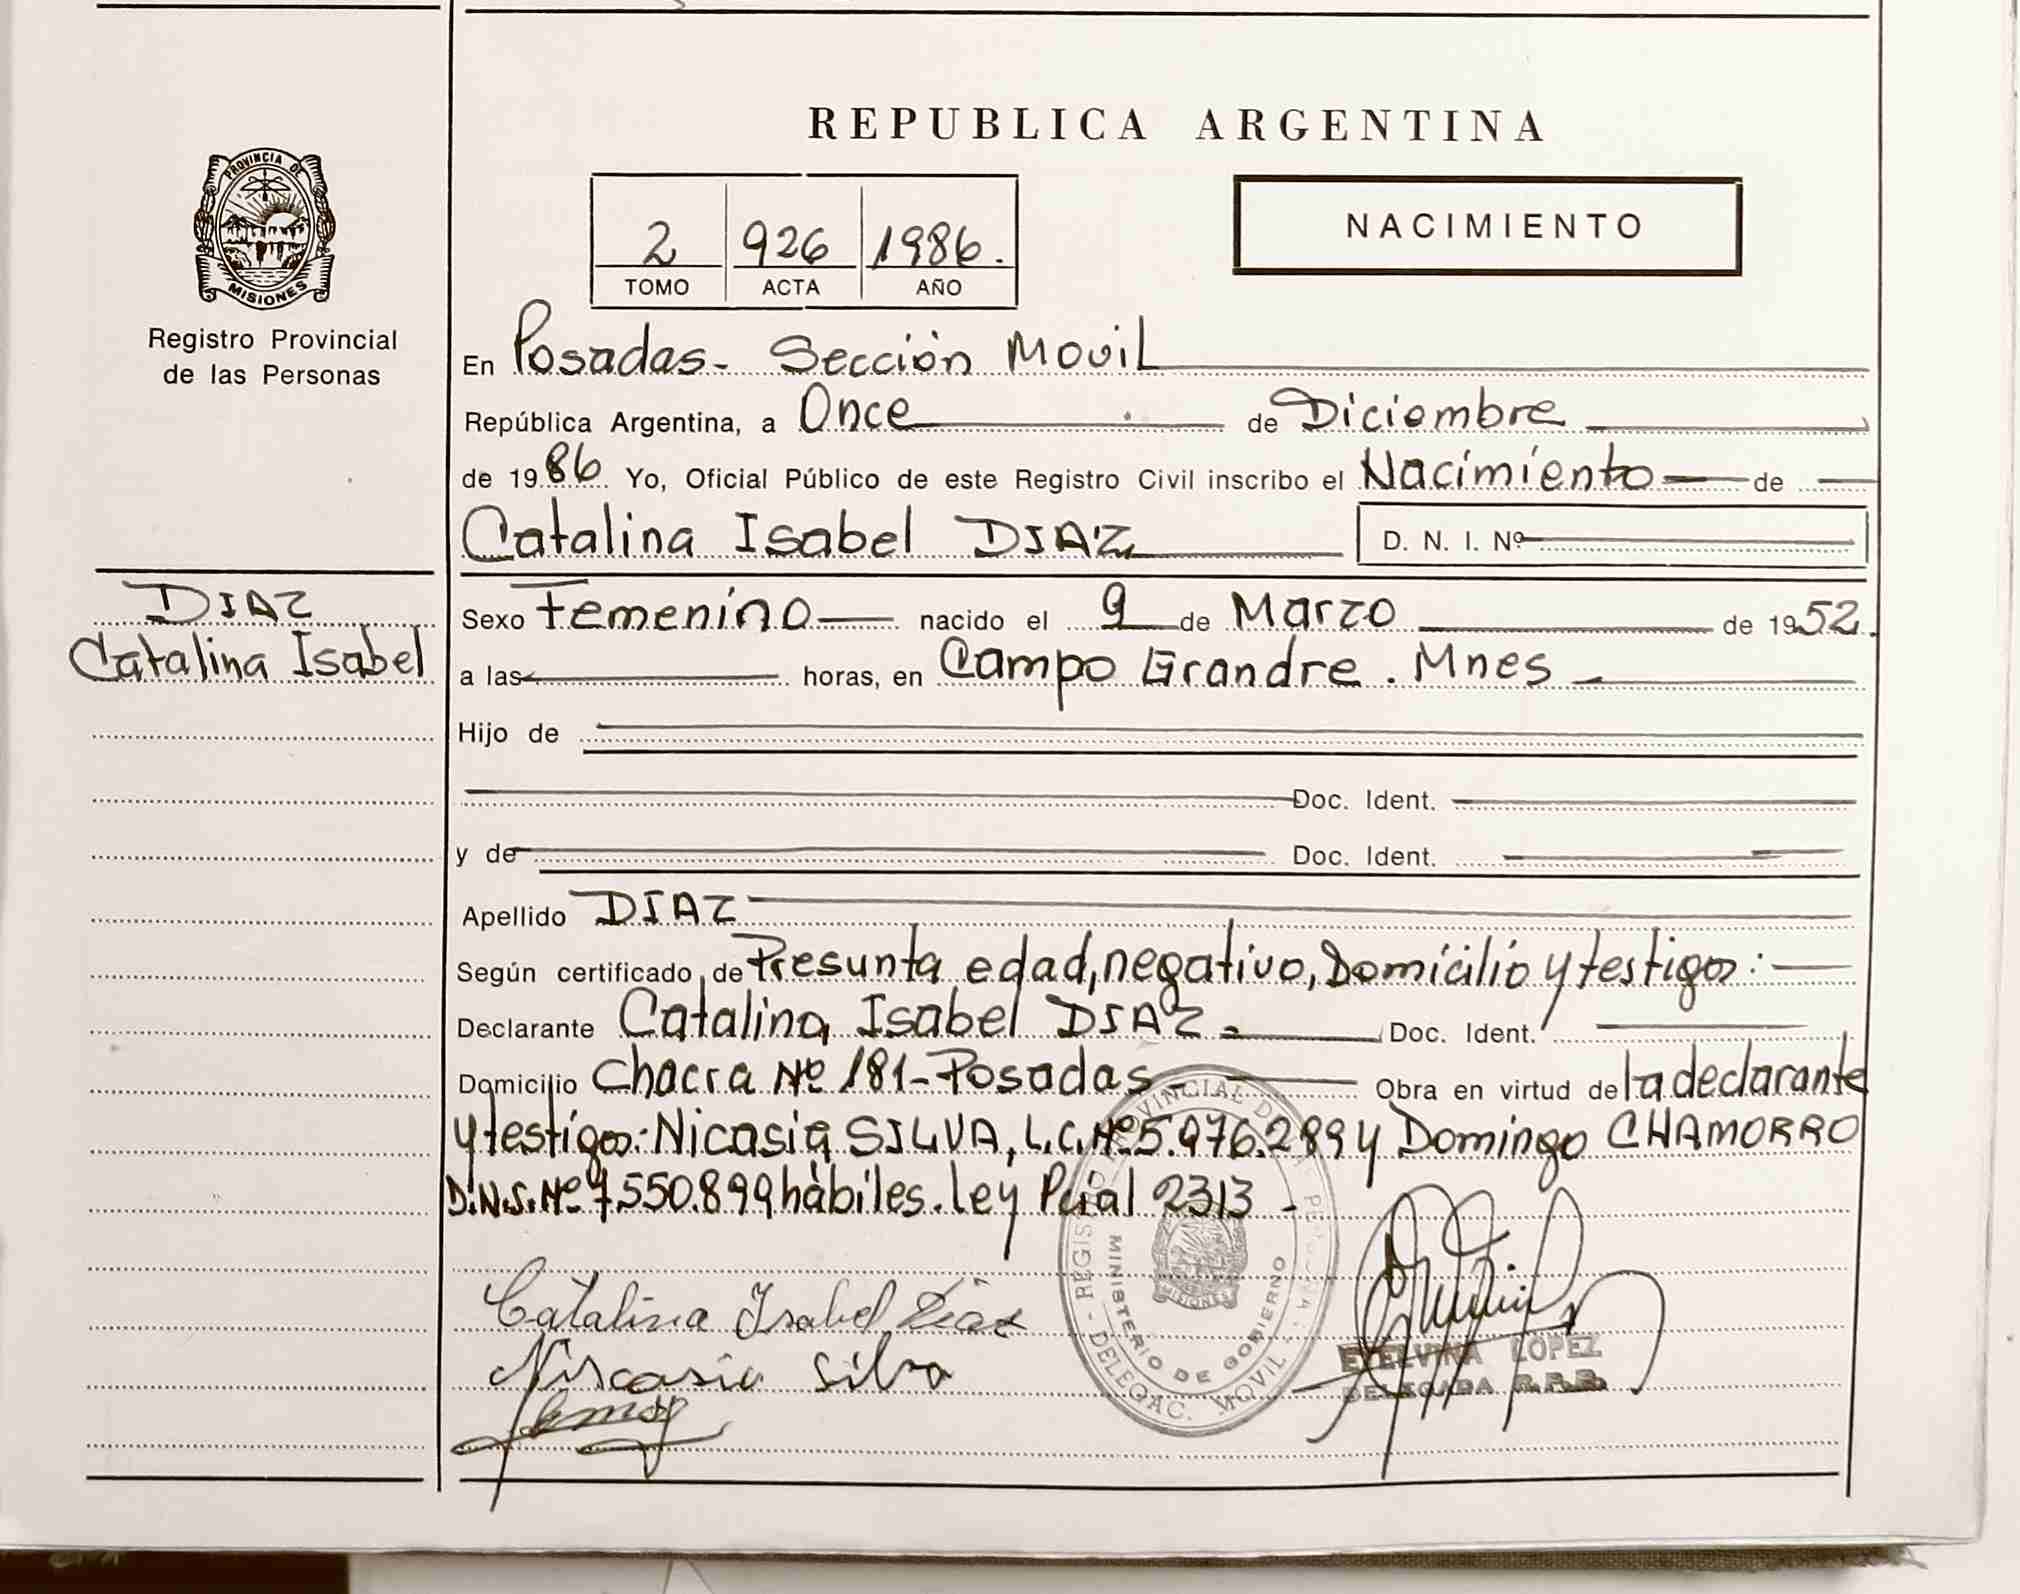 REPUBLICA ARGENTINA
PROVINCIA DE
MISIONES
Registro Provincial
de las Personas
2 926 1986.
TOMO ACTA AÑO
NACIMIENTO
En Posadas- Sección Movil
República Argentina, a Once de Diciembre
de 1986 Yo, Oficial Público de este Registro Civil inscribo el Nacimiento de
Catalina Isabel DIAZ D. N. I. Nº
DIAZ
Catalina Isabel
Sexo Femenino nacido el 9 de Marzo de 1952.
a las horas, en Campo Grandre. Mnes
Hijo de
Doc. Ident.
y de Doc. Ident.
Apellido DIAZ
Según certificado de Presunta edad, negativo, Domicilio y testigos:
Declarante Catalina Isabel DIAZ.- Doc. Ident.
Domicilio Chacra Nº 181-Posadas- Obra en virtud de la declarante
y testigos: Nicasia SILVA, L.C. Nº 5.976.289 y Domingo CHAMORRO
D.N.I. Nº 7.550.899 hábiles. ley Pcial 2313 -
Catalina Isabel Diaz
Niscasia Silva
REGISTRO PROVINCIAL DE LAS PERSONAS
MINISTERIO DE GOBIERNO
MISIONES
DELEGAC. MOVIL
ETELVINA LOPEZ
DELEGADA R.P.P.